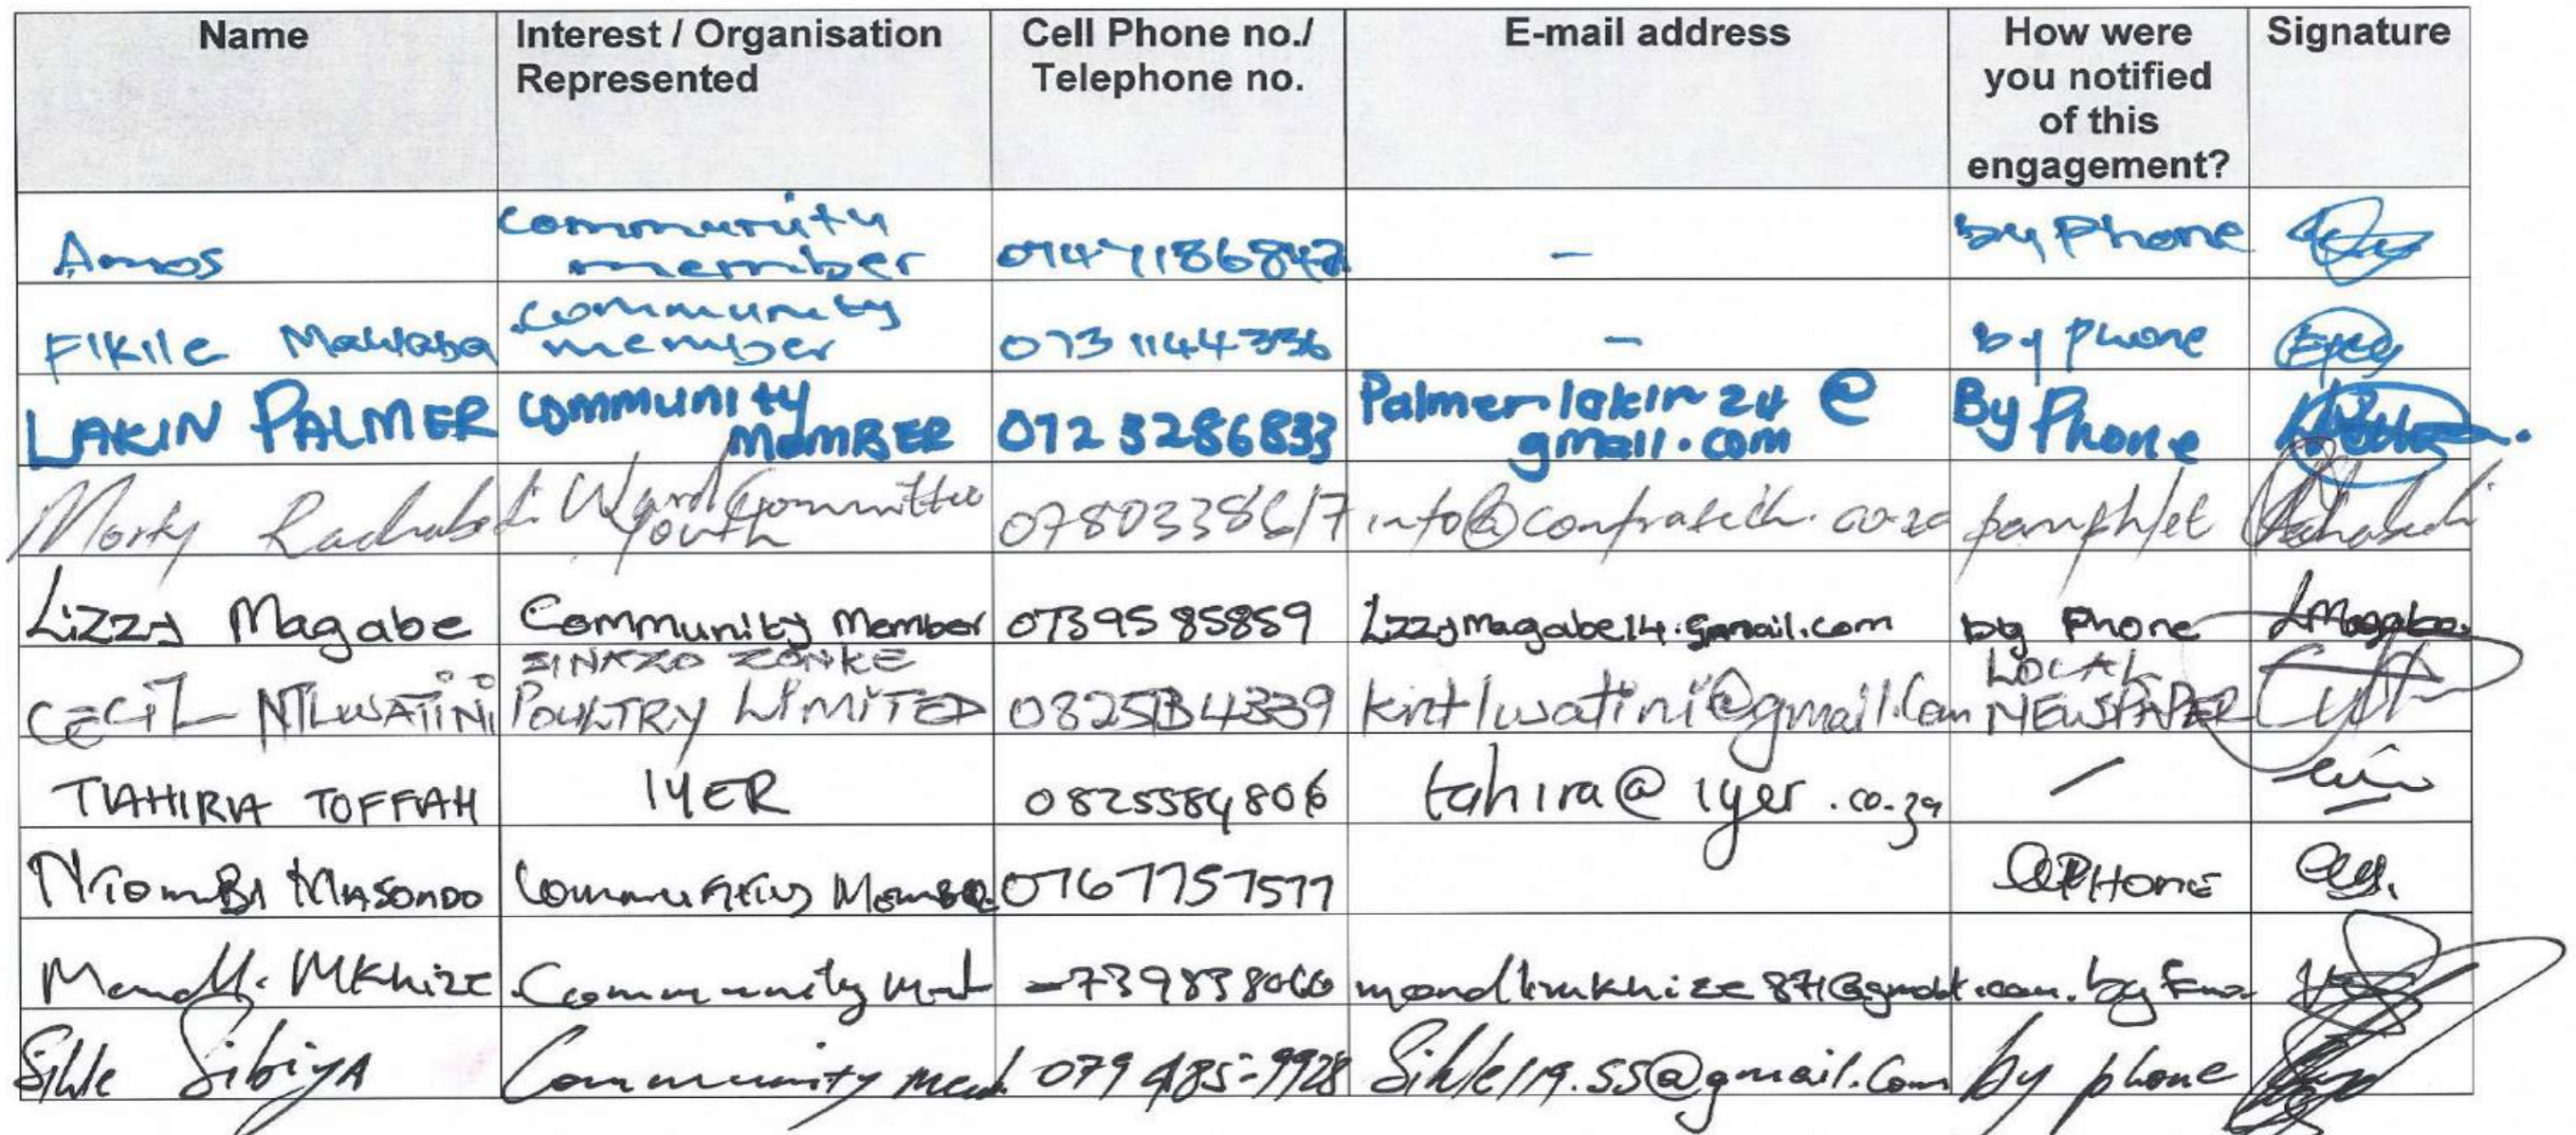 Name Interest / Organisation Represented Cell Phone no./ Telephone no. E-mail address How were you notified of this engagement? Signature
Amos community member - by Phone
Fikile community member 0731144336 - by phone
LAKIN PALMER community MEMBER 0723286833 Palmerlakin24@gmail.com By Phone
Morky Ward Committee Youth 0780338617 pamphlet
Lizzy Magabe Community Member 0739585859 Lizzymagabe14.gmail.com by Phone LMagabe
CECIL NTLWATINI SINAZO ZONKE POULTRY LIMITED kntlwatini@gmail.Com LOCAL NEWSPAPER
TAHIRA TOFFAH IYER 0825584806 tahira@iyer.co.za /
MASONDO Community Member 0767757577 PHONE
MKhize Community by
Sihle Sibiya Community 079 485-9928 Sihle119.ss@gmail.Com by phone